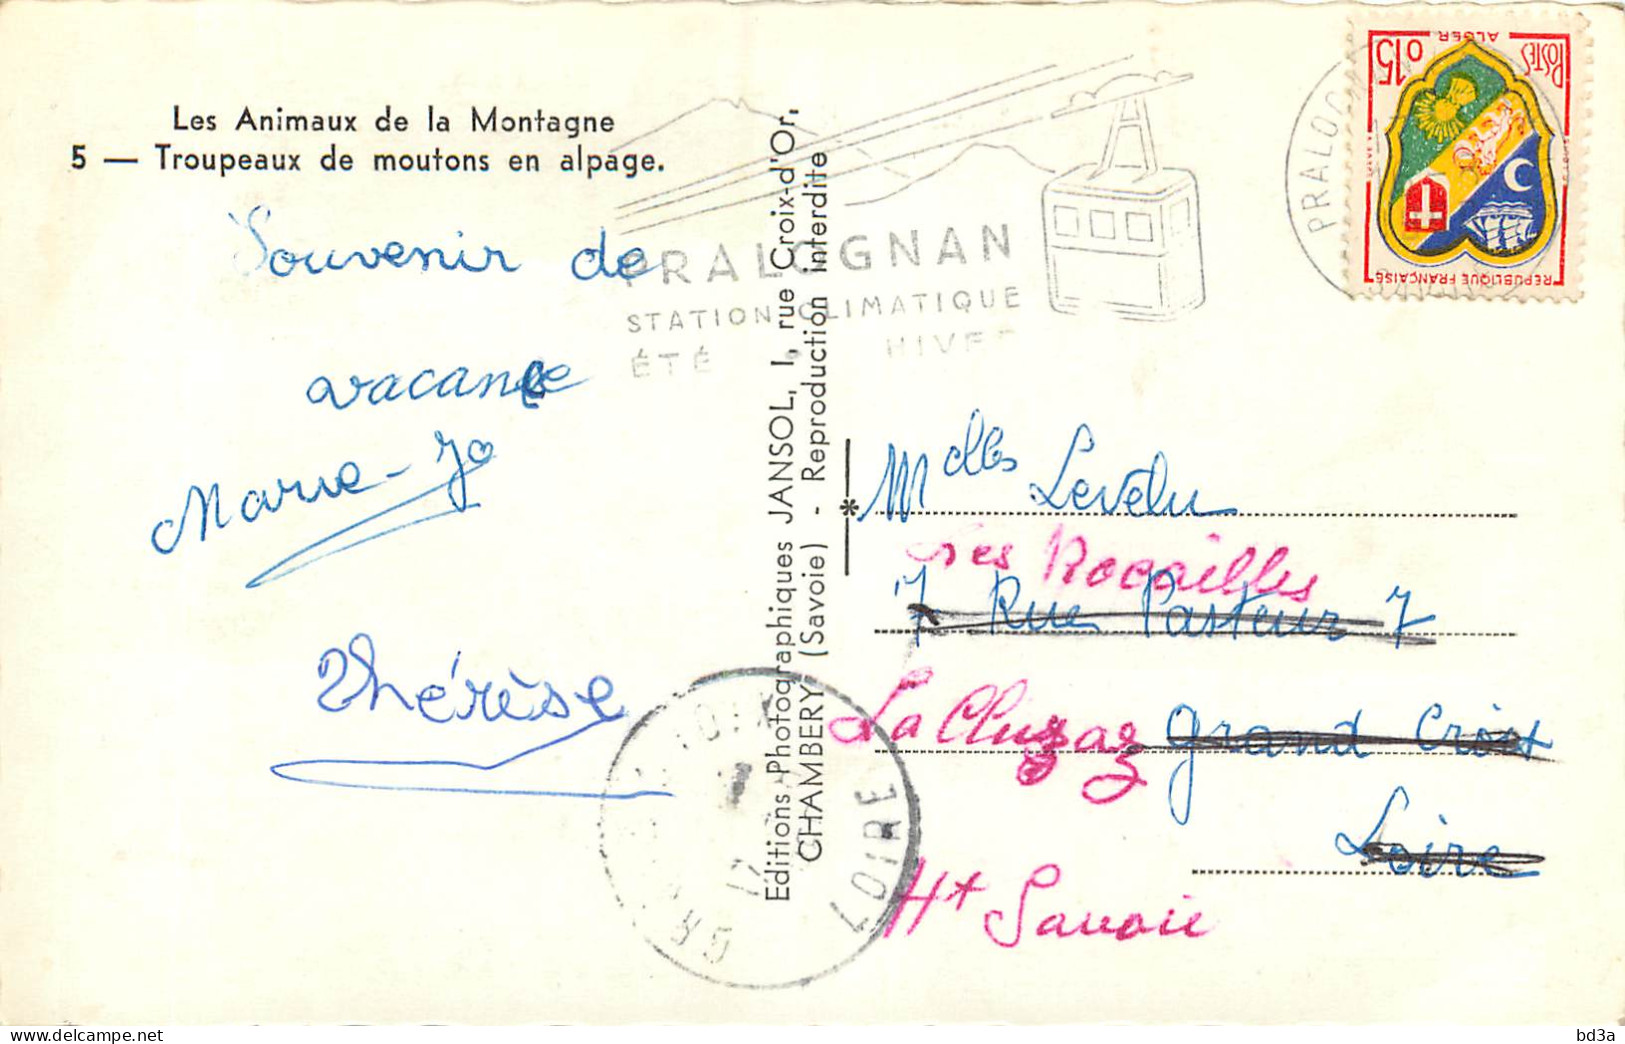 Les Animaux de la Montagne
5 — Troupeaux de moutons en alpage.
Souvenir de
vacance
Marie-Jo
Thérèse
PRALOGNAN
STATION CLIMATIQUE
ÉTÉ HIVER
Editions Photographiques JANSOL, 1, rue Croix-d'Or,
CHAMBERY (Savoie) - Reproduction interdite
POSTES ALGER 0,15
REPUBLIQUE FRANÇAISE
PRALOGNAN
Melles Levelu
Les Rocailles
7 Rue Pasteur 7
La Clusaz Grand Croix
Loire
Ht Savoie
17
LOIRE
bd3a